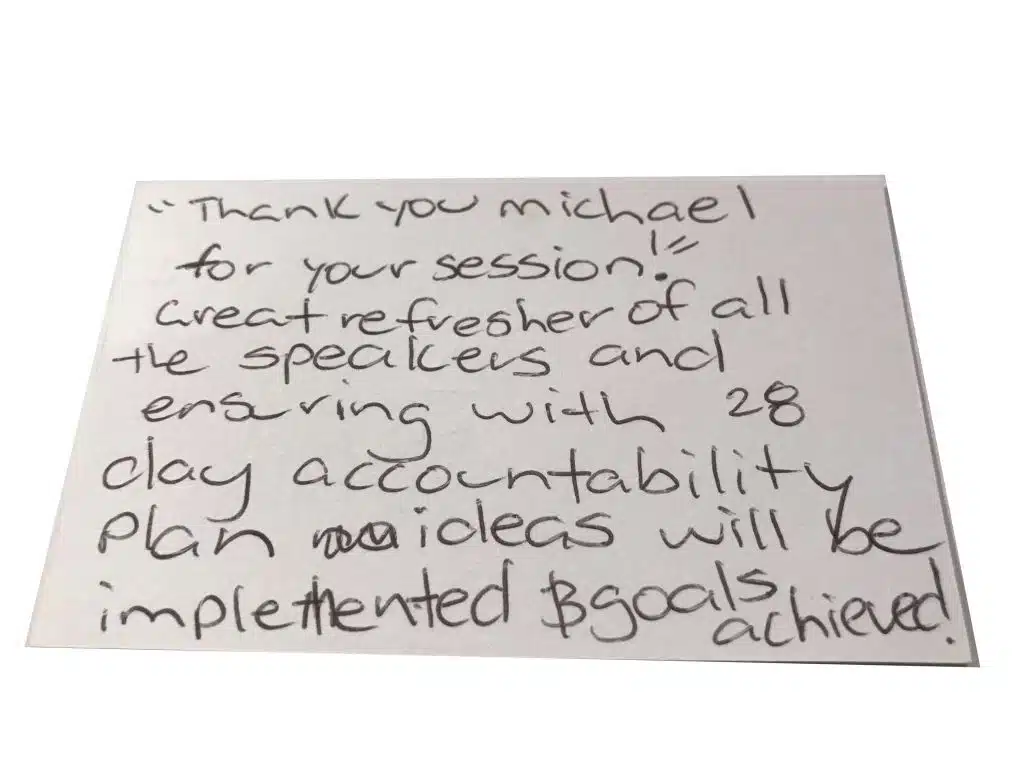 "Thank you michael
for your session!"
Great refresher of all
the speakers and
ensuring with 28
day accountability
plan ideas will be
implemented & goals
achieved!